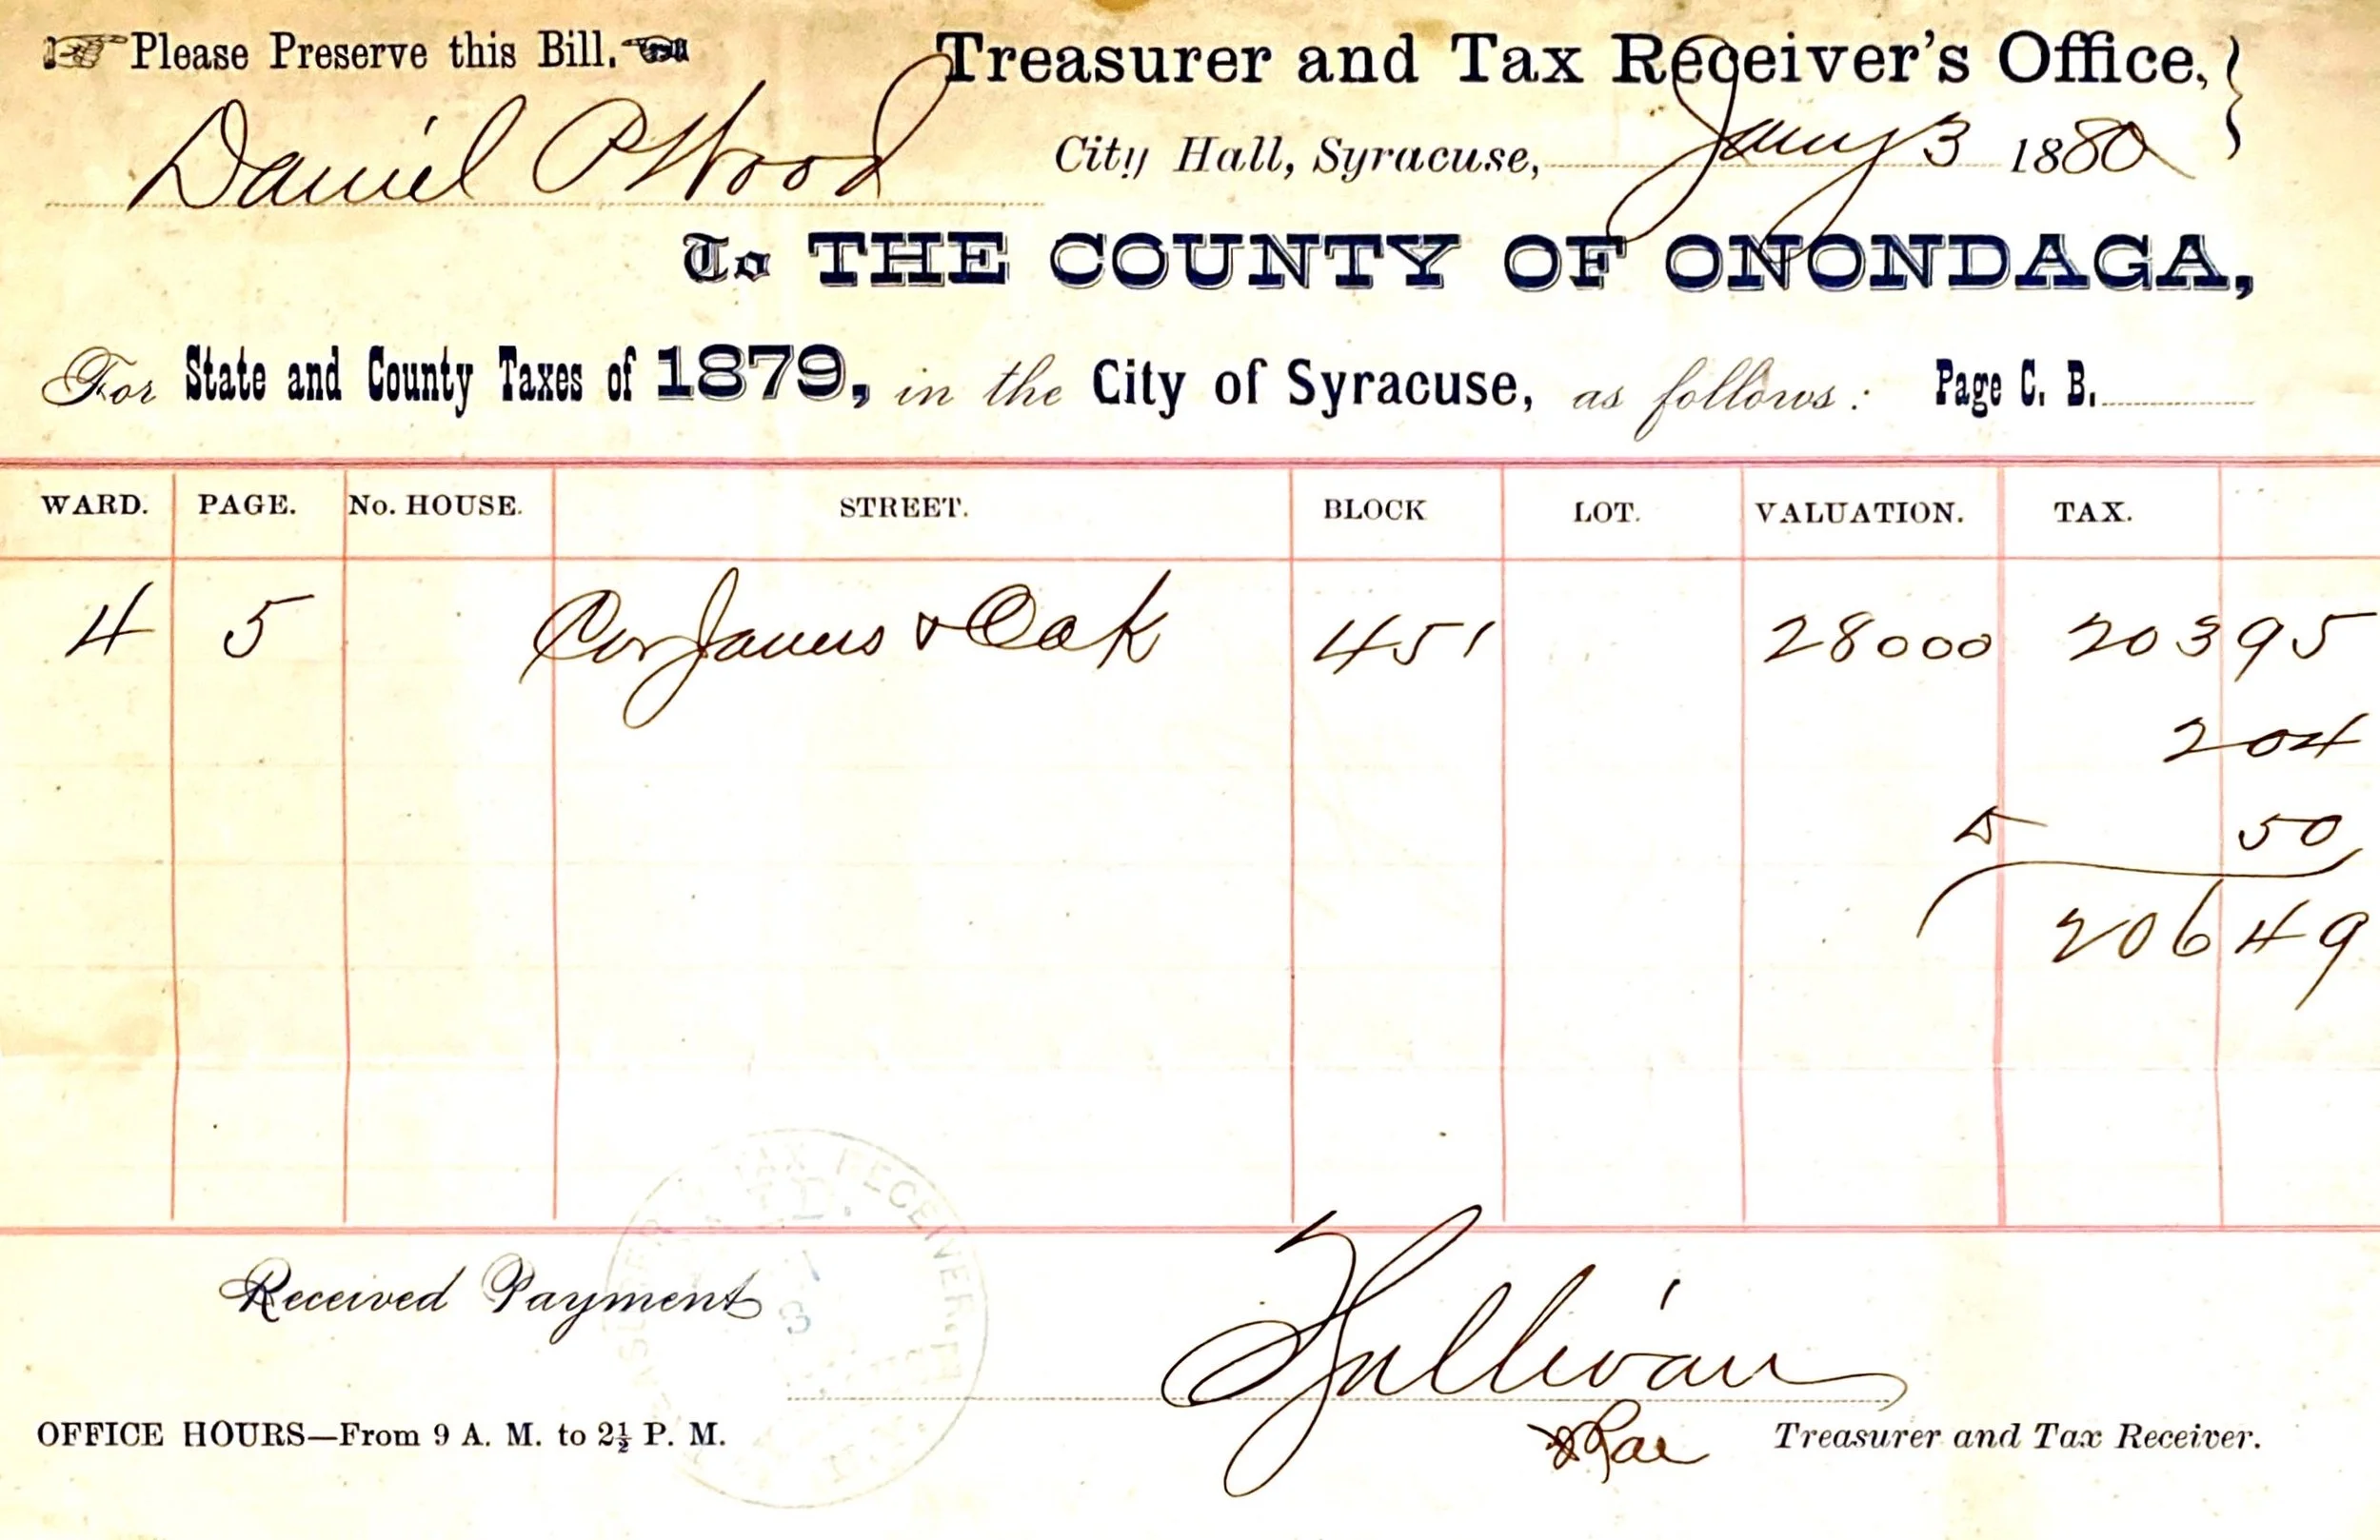 Please Preserve this Bill.
Treasurer and Tax Receiver's Office,
Daniel P Wood
City Hall, Syracuse, Jany 3 1880
To THE COUNTY OF ONONDAGA,
For State and County Taxes of 1879, in the City of Syracuse, as follows: Page C. B.
WARD. PAGE. No. HOUSE. STREET. BLOCK LOT. VALUATION. TAX.
4 5 Cor James & Oak 451 28000 203 95
2 04
5 50
206 49
TAX RECEIVER
3
Received Payment
Sullivan
OFFICE HOURS—From 9 A. M. to 2½ P. M.
Treasurer and Tax Receiver.